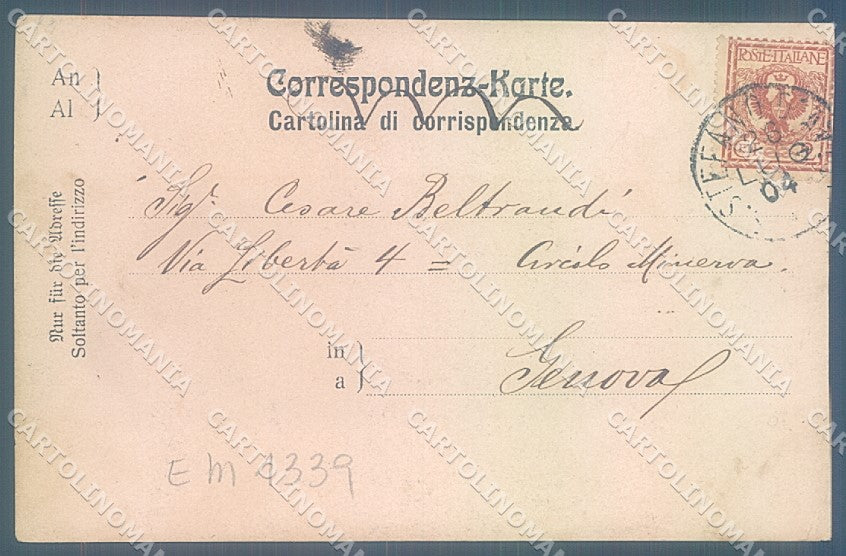 Correspondenz-Karte.
Cartolina di corrispondenza
An
Al
POSTE·ITALIANE
Sigr Cesare Beltrandi
Via Libertà 4 = Circolo Minerva.
Nur für die Adresse
Soltanto per l'indirizzo
in
a
Genova
E M 339
CARTOLINOMANIA